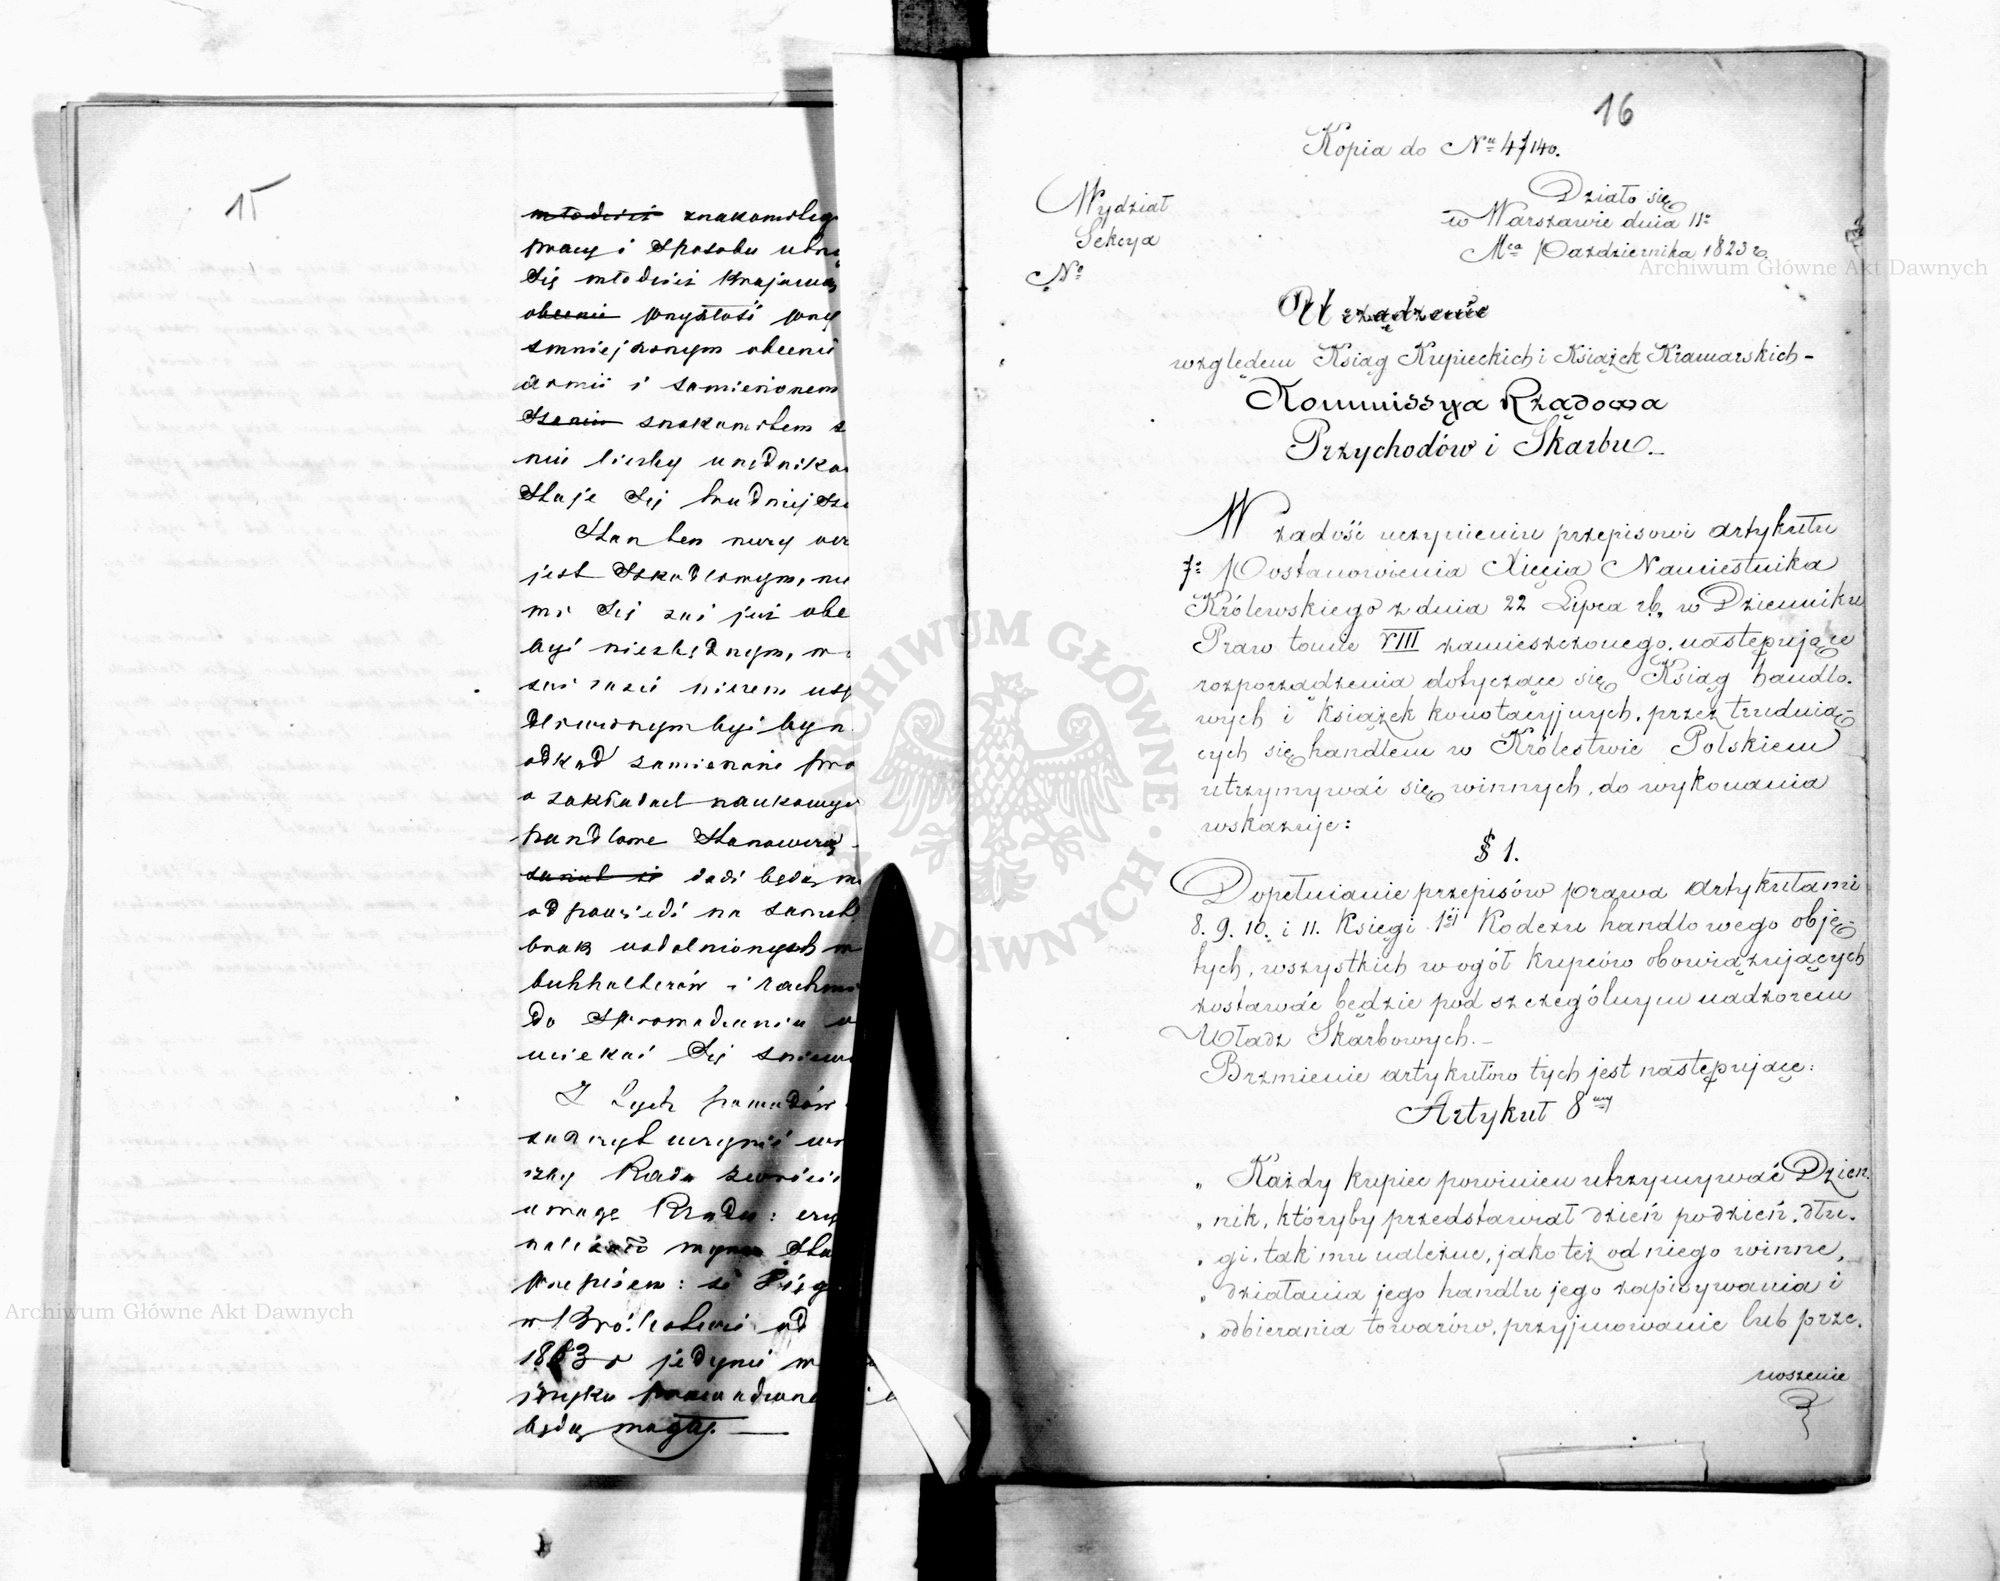 15
młodzież znakomitego
pracy i sposobu
się młodzież krajową
obecnie przyszłość
zmniejszonym obecnie
armii i zamienionem
znakomitem
nie liczby urzędników
staje się trudniejsze
Stan ten
jest szkodliwym, nie
się zaś już obe
być niezbędnym,
zaś razie niczem
być by
odkąd zamienione
o zakładach naukowych
handlowe stanowią
dadź będą
odpowiedź na zarzut
brak uzdolnionych
buchhalterów i rachmi
do sprowadzania
uciekać się
Z tych powodów
zaszczyt uczynić
Rada zwrócić
uwagę Rządu: czy
należało
przepisem: że
w Królestwie od
1883 r jedynie w
języku
będą mogły.
16
Kopia do Nu 47140.
Wydział
Sekcya
No
Działo się
w Warszawie dnia 11o
Mca Października 1823 r.
Urządzenie
względem Ksiąg Kupieckich i Książek Kramarskich -
Kommissya Rządowa
Przychodów i Skarbu. -
W zadość uczynieniu przepisowi artykułu
7o Postanowienia Xięcia Namiestnika
Królewskiego z dnia 22 Lipca rb. w Dzienniku
Praw tomie VIII zamieszczonego, następujące
rozporządzenia dotyczące się Ksiąg handlo-
wych i książek konotacyjnych, przez trudnią-
cych się handlem w Królestwie Polskiem
utrzymywać się winnych, do wykonania
wskazuje:
§ 1.
Dopełnianie przepisów prawa artykułami
8. 9. 10. i 11. Księgi 1ej Kodexu handlowego obję-
tych, wszystkich w ogół kupców obowiązujących
zostawać będzie pod szczególnym nadzorem
Władz Skarbowych. -
Brzmienie artykułów tych jest następujące:
Artykuł 8my
„ Każdy kupiec powinien utrzymywać Dzien-
„ nik, któryby przedstawiał dzień podzień, dłu-
„ gi, tak mu należne, jako też od niego winne,
„ działania jego handlu jego zapisywania i
„ odbierania towarów, przyjmowanie lub prze-
noszenie
Archiwum Główne Akt Dawnych
Archiwum Główne Akt Dawnych
ARCHIWUM GŁÓWNE AKT DAWNYCH